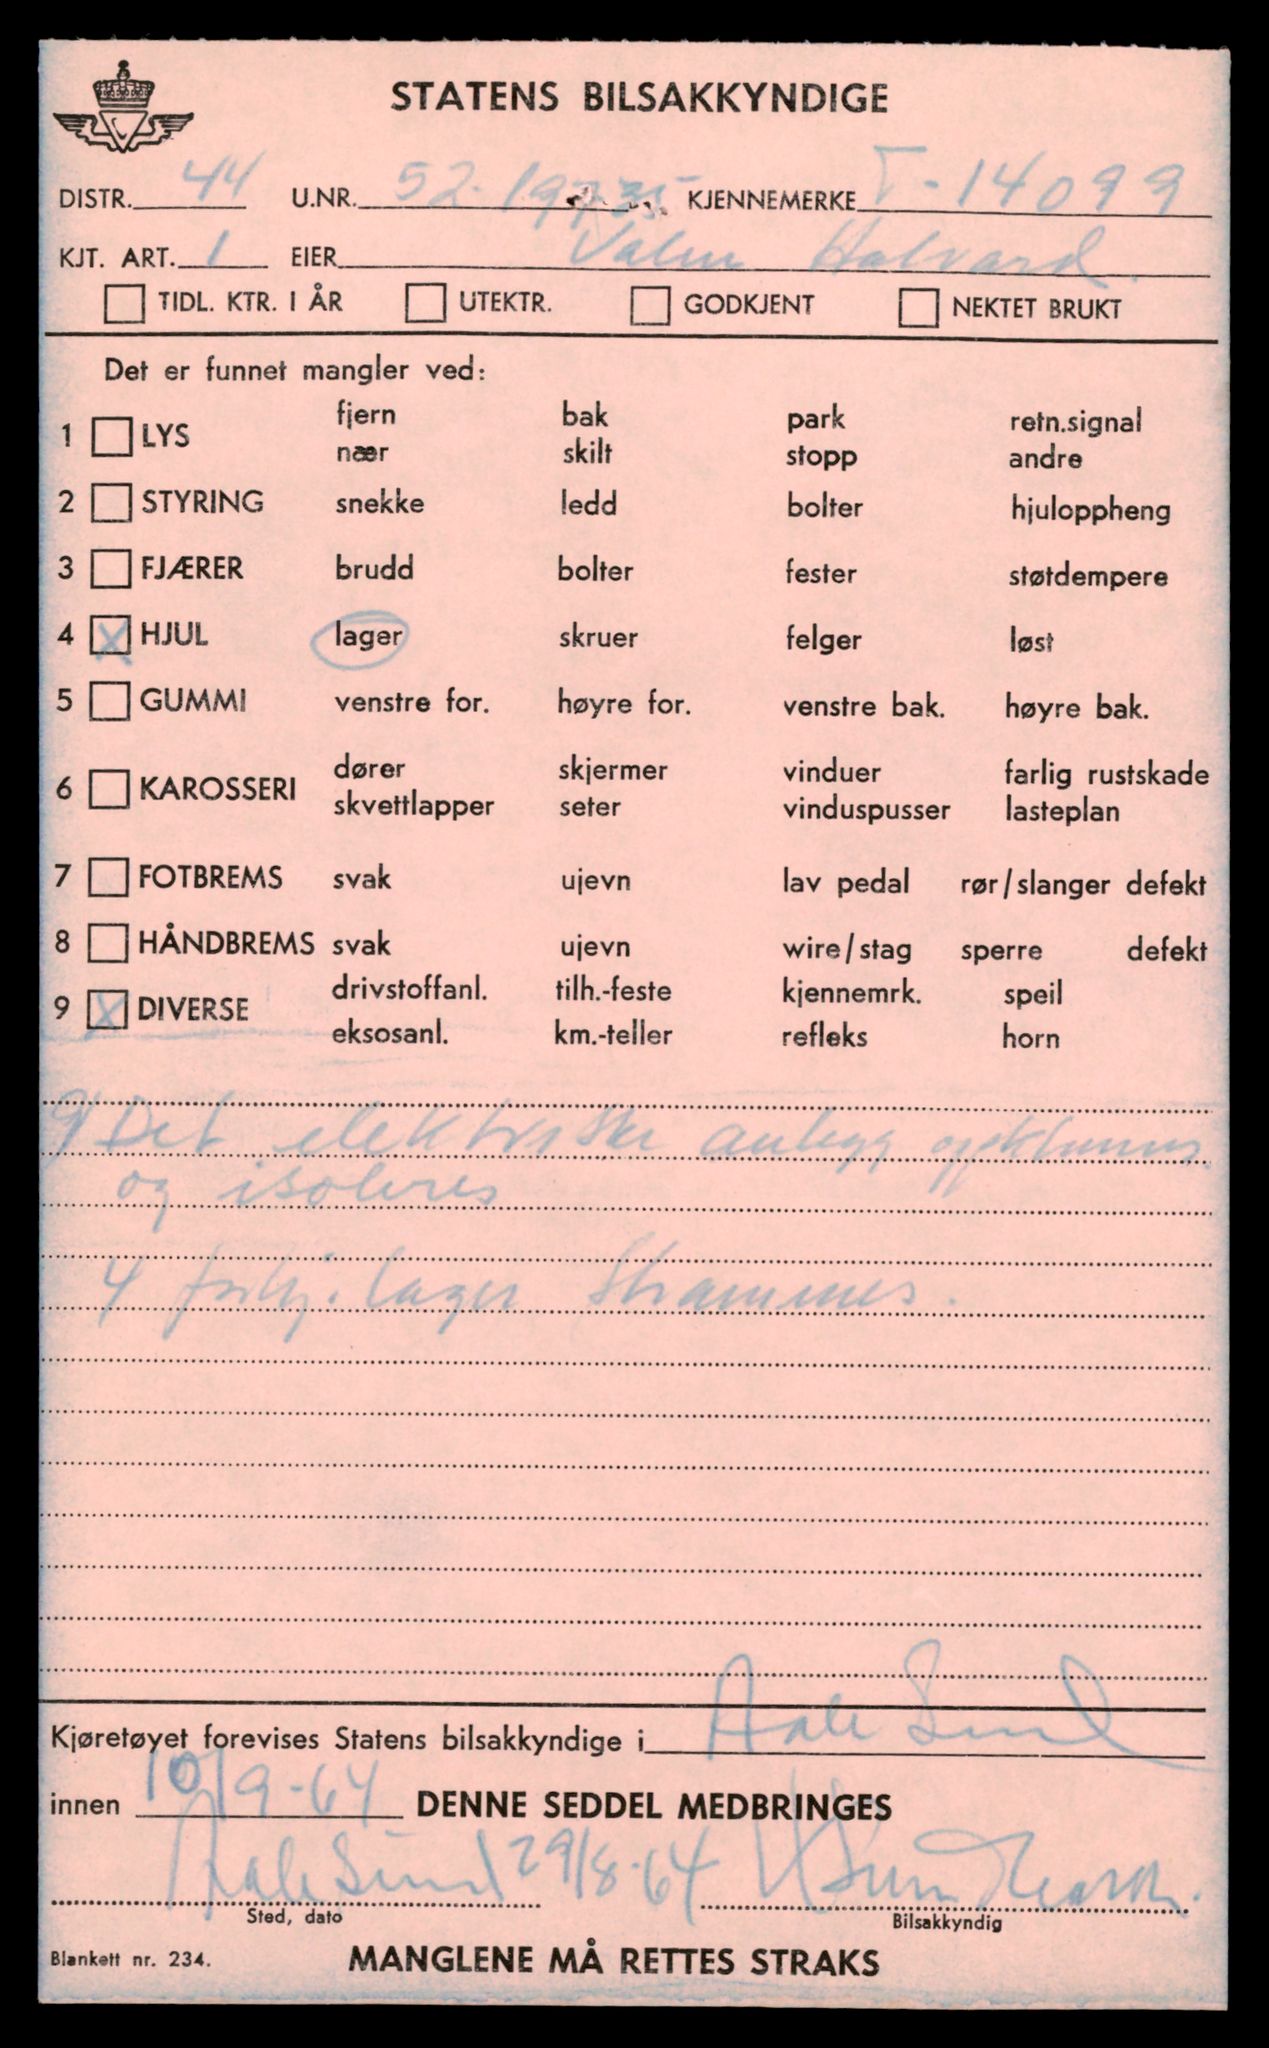 STATENS BILSAKKYNDIGE
DISTR. 44 U.NR. 52-19 KJENNEMERKE T-14099
KJT. ART. 1 EIER Halvard
TIDL. KTR. I ÅR UTEKTR. GODKJENT NEKTET BRUKT
Det er funnet mangler ved:
1 LYS fjern bak park retn.signal
nær skilt stopp andre
2 STYRING snekke ledd bolter hjuloppheng
3 FJÆRER brudd bolter fester støtdempere
4 X HJUL lager skruer felger løst
5 GUMMI venstre for. høyre for. venstre bak. høyre bak.
6 KAROSSERI dører skjermer vinduer farlig rustskade
skvettlapper seter vinduspusser lasteplan
7 FOTBREMS svak ujevn lav pedal rør/slanger defekt
8 HÅNDBREMS svak ujevn wire/stag sperre defekt
9 X DIVERSE drivstoffanl. tilh.-feste kjennemrk. speil
eksosanl. km.-teller refleks horn
9 Det elektriske anlegg
og isoleres
4 forhj. lager Strammes.
Kjøretøyet forevises Statens bilsakkyndige i Aale Sund
innen 10/9-64 DENNE SEDDEL MEDBRINGES
Aale Sund 29/8-64
Sted, dato Bilsakkyndig
Blankett nr. 234. MANGLENE MÅ RETTES STRAKS